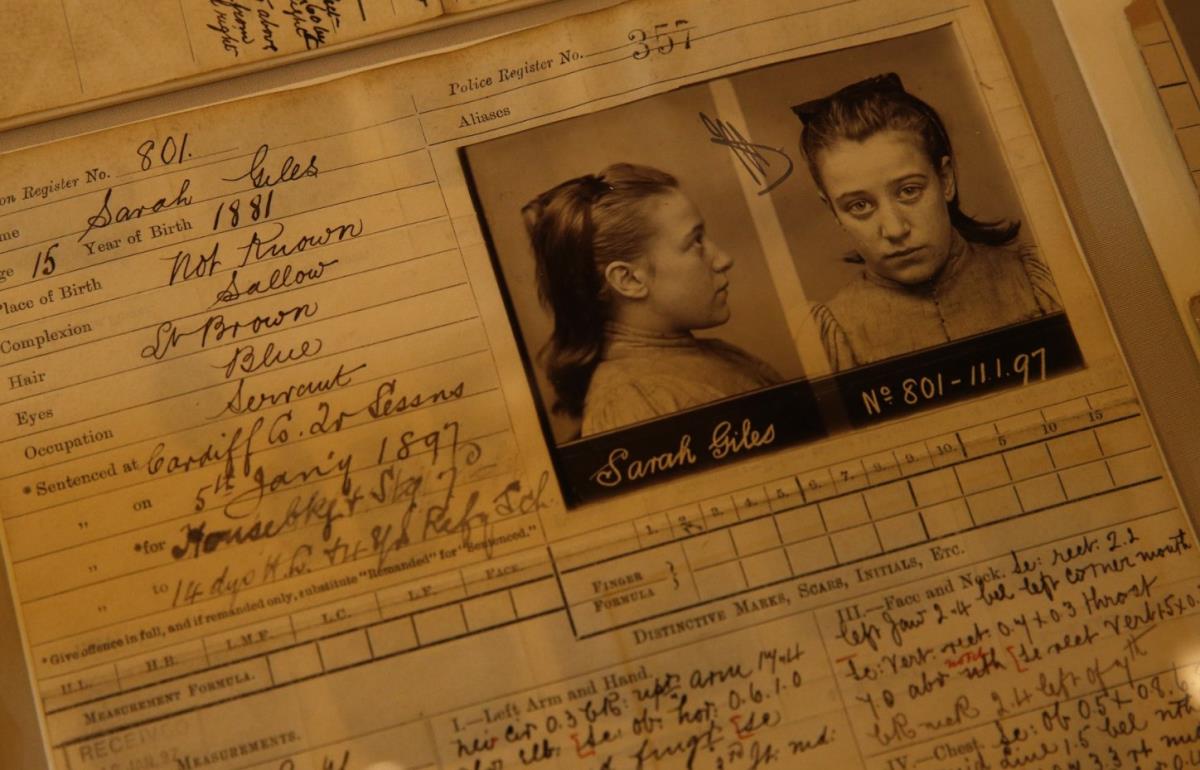 Police Register No. 357
Aliases
on Register No. 801.
me Sarah Giles
ge 15 Year of Birth 1881
Place of Birth Not Known
Complexion Sallow
Hair Lt Brown
Eyes Blue
Occupation Servant
*Sentenced at Cardiff Co. Qr Sessns
„ on 5th Jan'y 1897
„ *for Housebkg & Stg 7/-
„ to 14 dys H.L. + 4 yrs Refy Sch.
*Give offence in full, and if remanded only, substitute "Remanded" for "Sentenced."
Sarah Giles
No 801-11.1.97
H.L. H.B. L.M.F. L.C. L.F. FACE.
MEASUREMENT FORMULA.
1. 2. 3. 4. 5. 6. 7. 8. 9. 10. 5 10 15
FINGER FORMULA }
DISTINCTIVE MARKS, SCARS, INITIALS, ETC.
RECEIVED
JAN. 97
MEASUREMENTS.
I.—Left Arm and Hand.
nev cir 0.3 bk: upr arm
elb: [Sc: ob: hor: 0.6. 1.0
III.—Face and Neck. Sc: rect. 2.2
left jaw 2.4 bel left corner mouth
Sc: Vert: rect. 0.4 x 0.3 throat
bk neck 2.4 left of
IV.—Chest. Sc: ob 0.5 x
line 1.5 bel